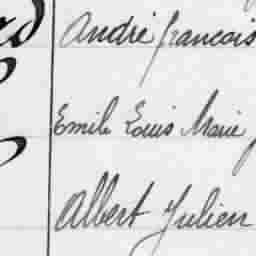 André francois
Emile Louis Marie
Albert Julien